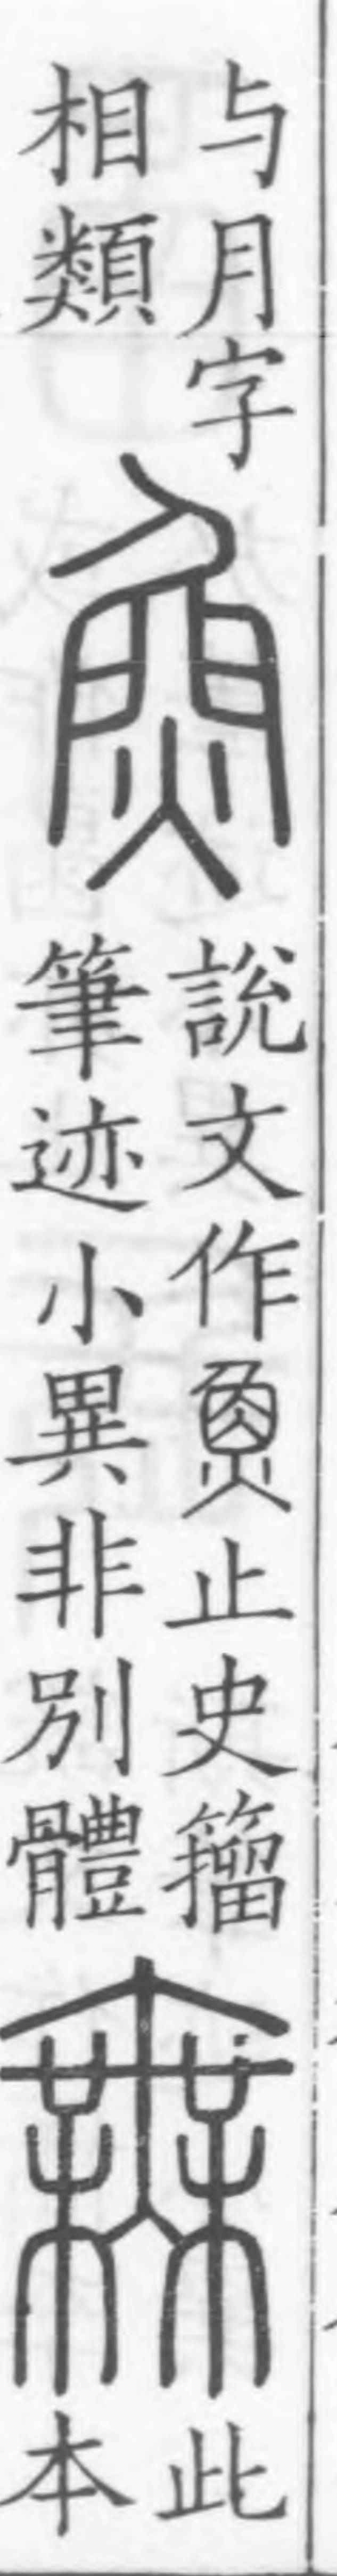 与月字
相類
魚
說文作𤋳止史籀
筆迹小異非別體
無
此
本